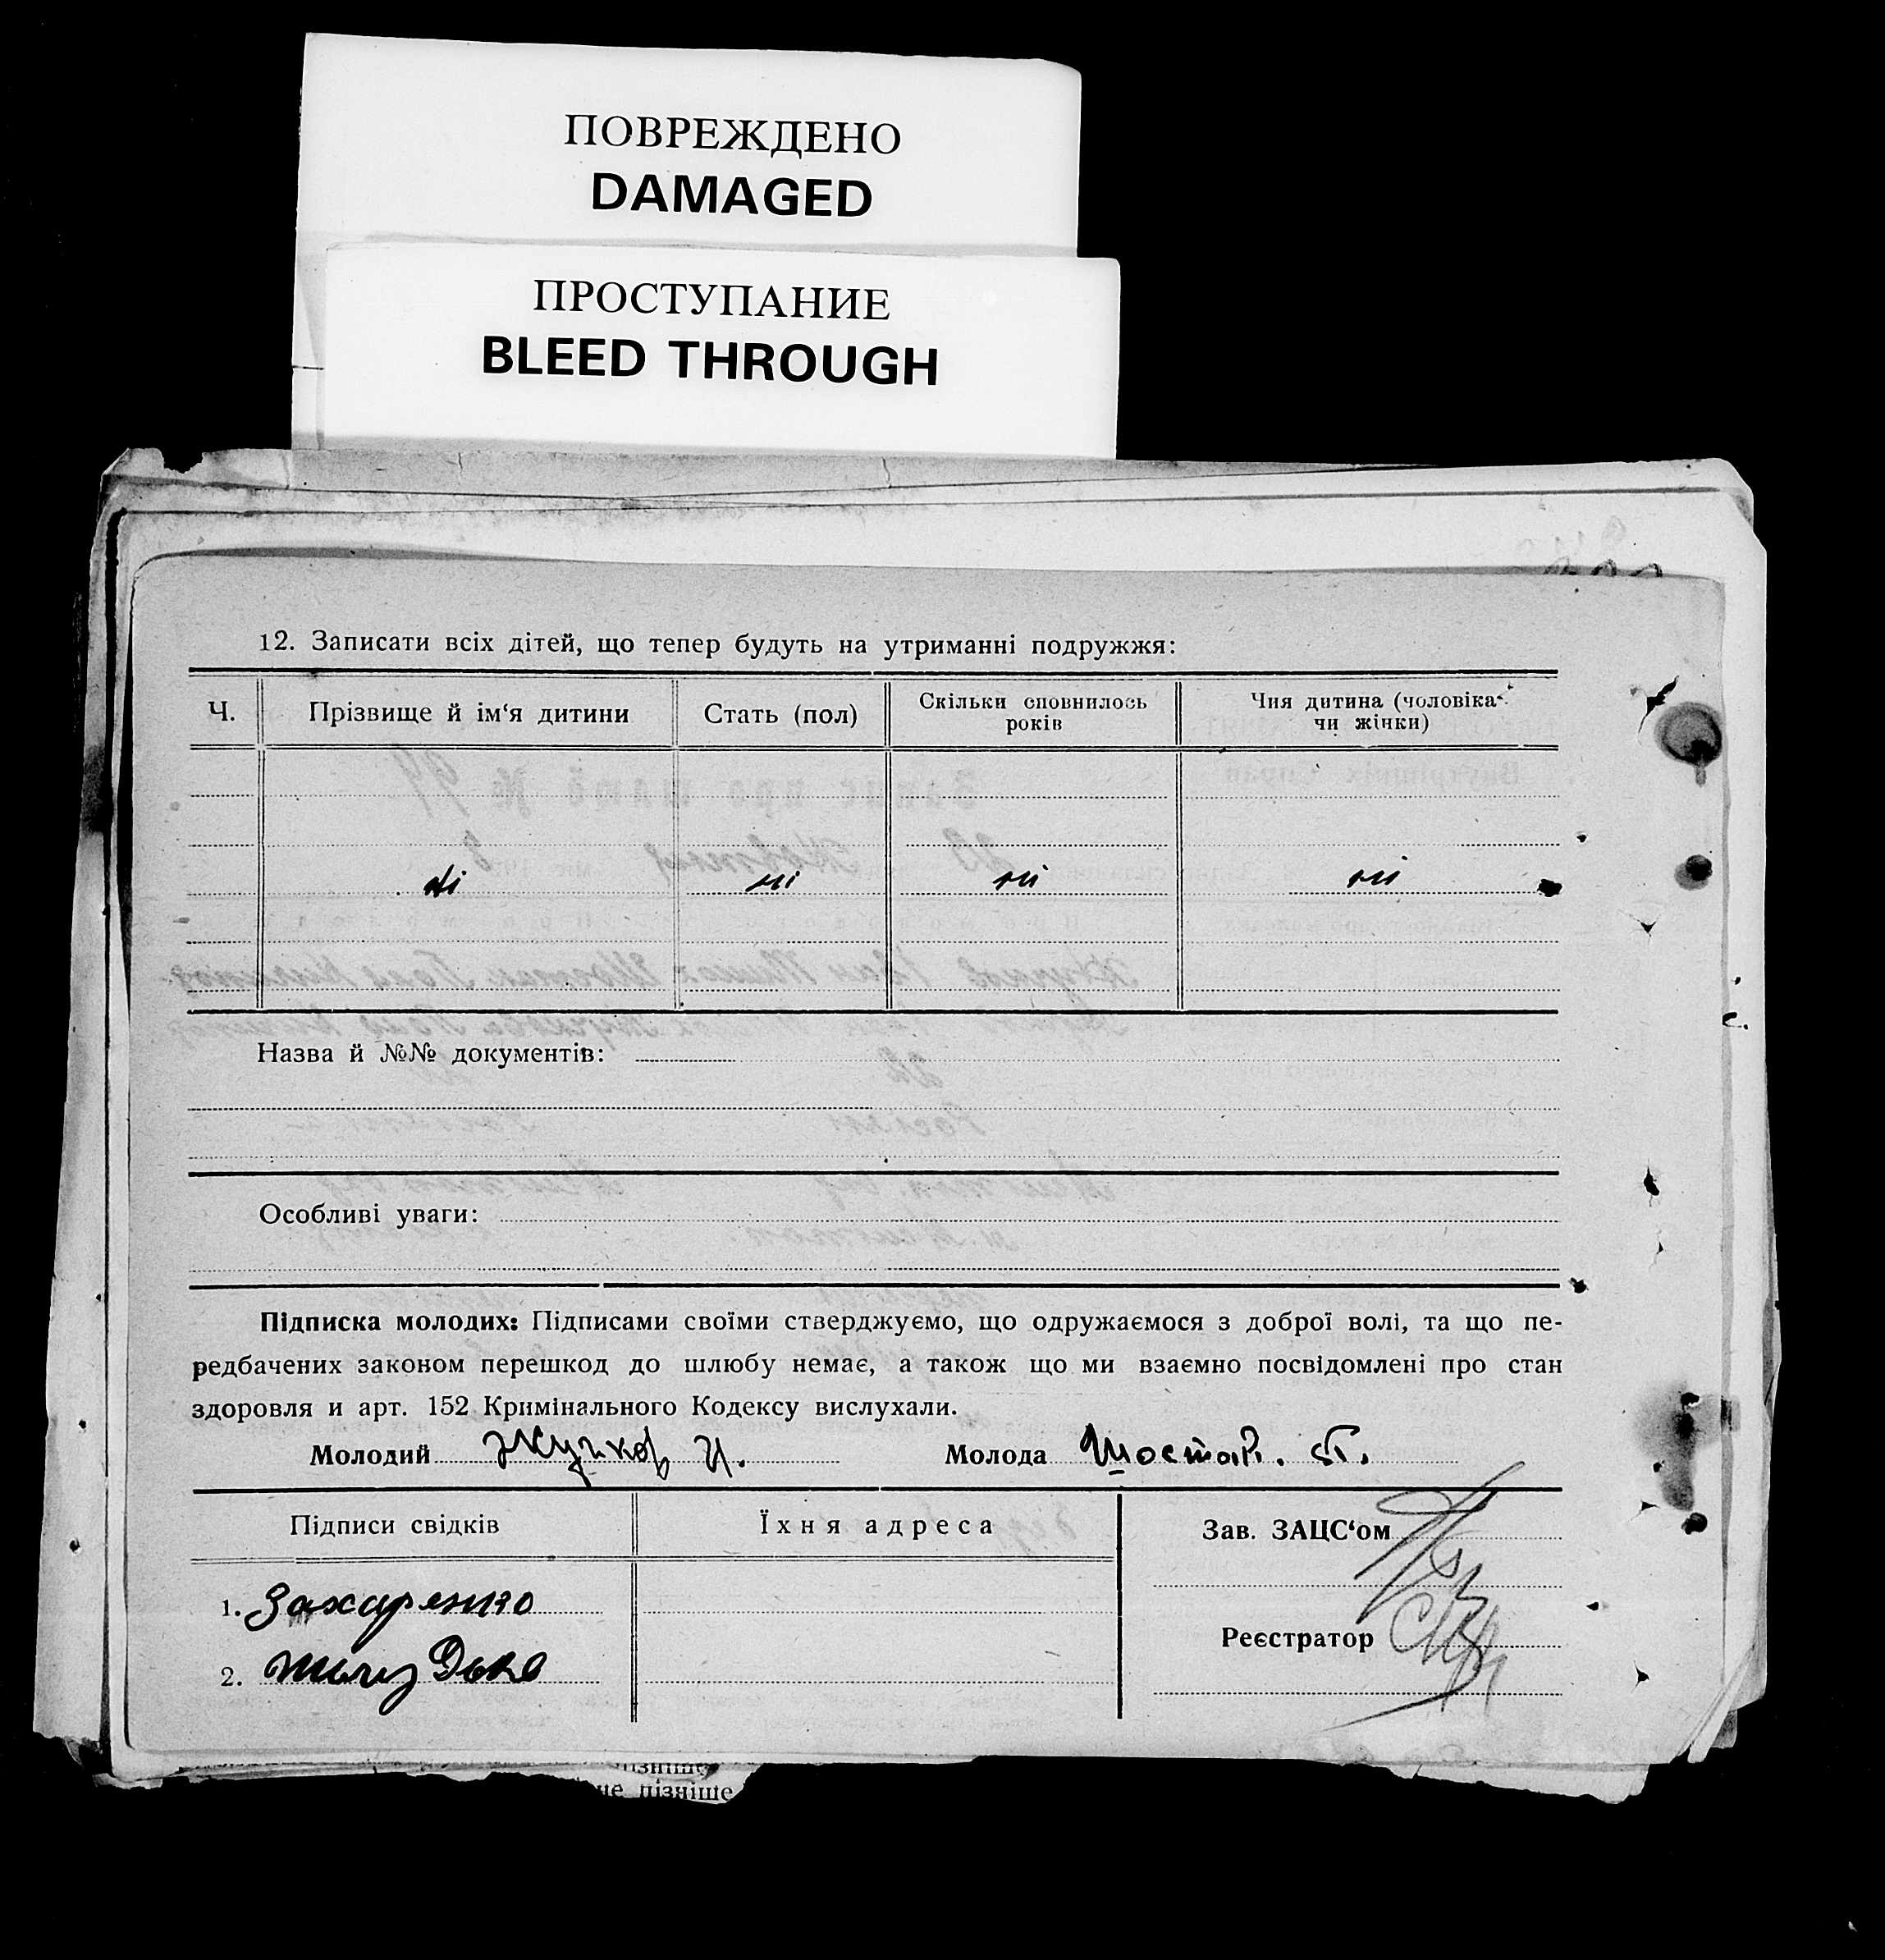 ПОВРЕЖДЕНО
DAMAGED
ПРОСТУПАНИЕ
BLEED THROUGH
12. Записати всіх дітей, що тепер будуть на утриманні подружжя:
Ч. Прізвище й ім‘я дитини Стать (пол) Скільки сповнилось років Чия дитина (чоловіка чи жінки)
ні ні ні ні
Назва й №№ документів:
Особливі уваги:
Підписка молодих: Підписами своїми стверджуємо, що одружаємося з доброї волі, та що пе-
редбачених законом перешкод до шлюбу немає, а також що ми взаємно посвідомлені про стан
здоровля и арт. 152 Кримінального Кодексу вислухали.
Молодий Жучков И. Молода Шостак. П.
Підписи свідків Їхня адреса Зав. ЗАЦС‘ом
1. Захаренко
Реєстратор
2.
пізніше
не пізніше